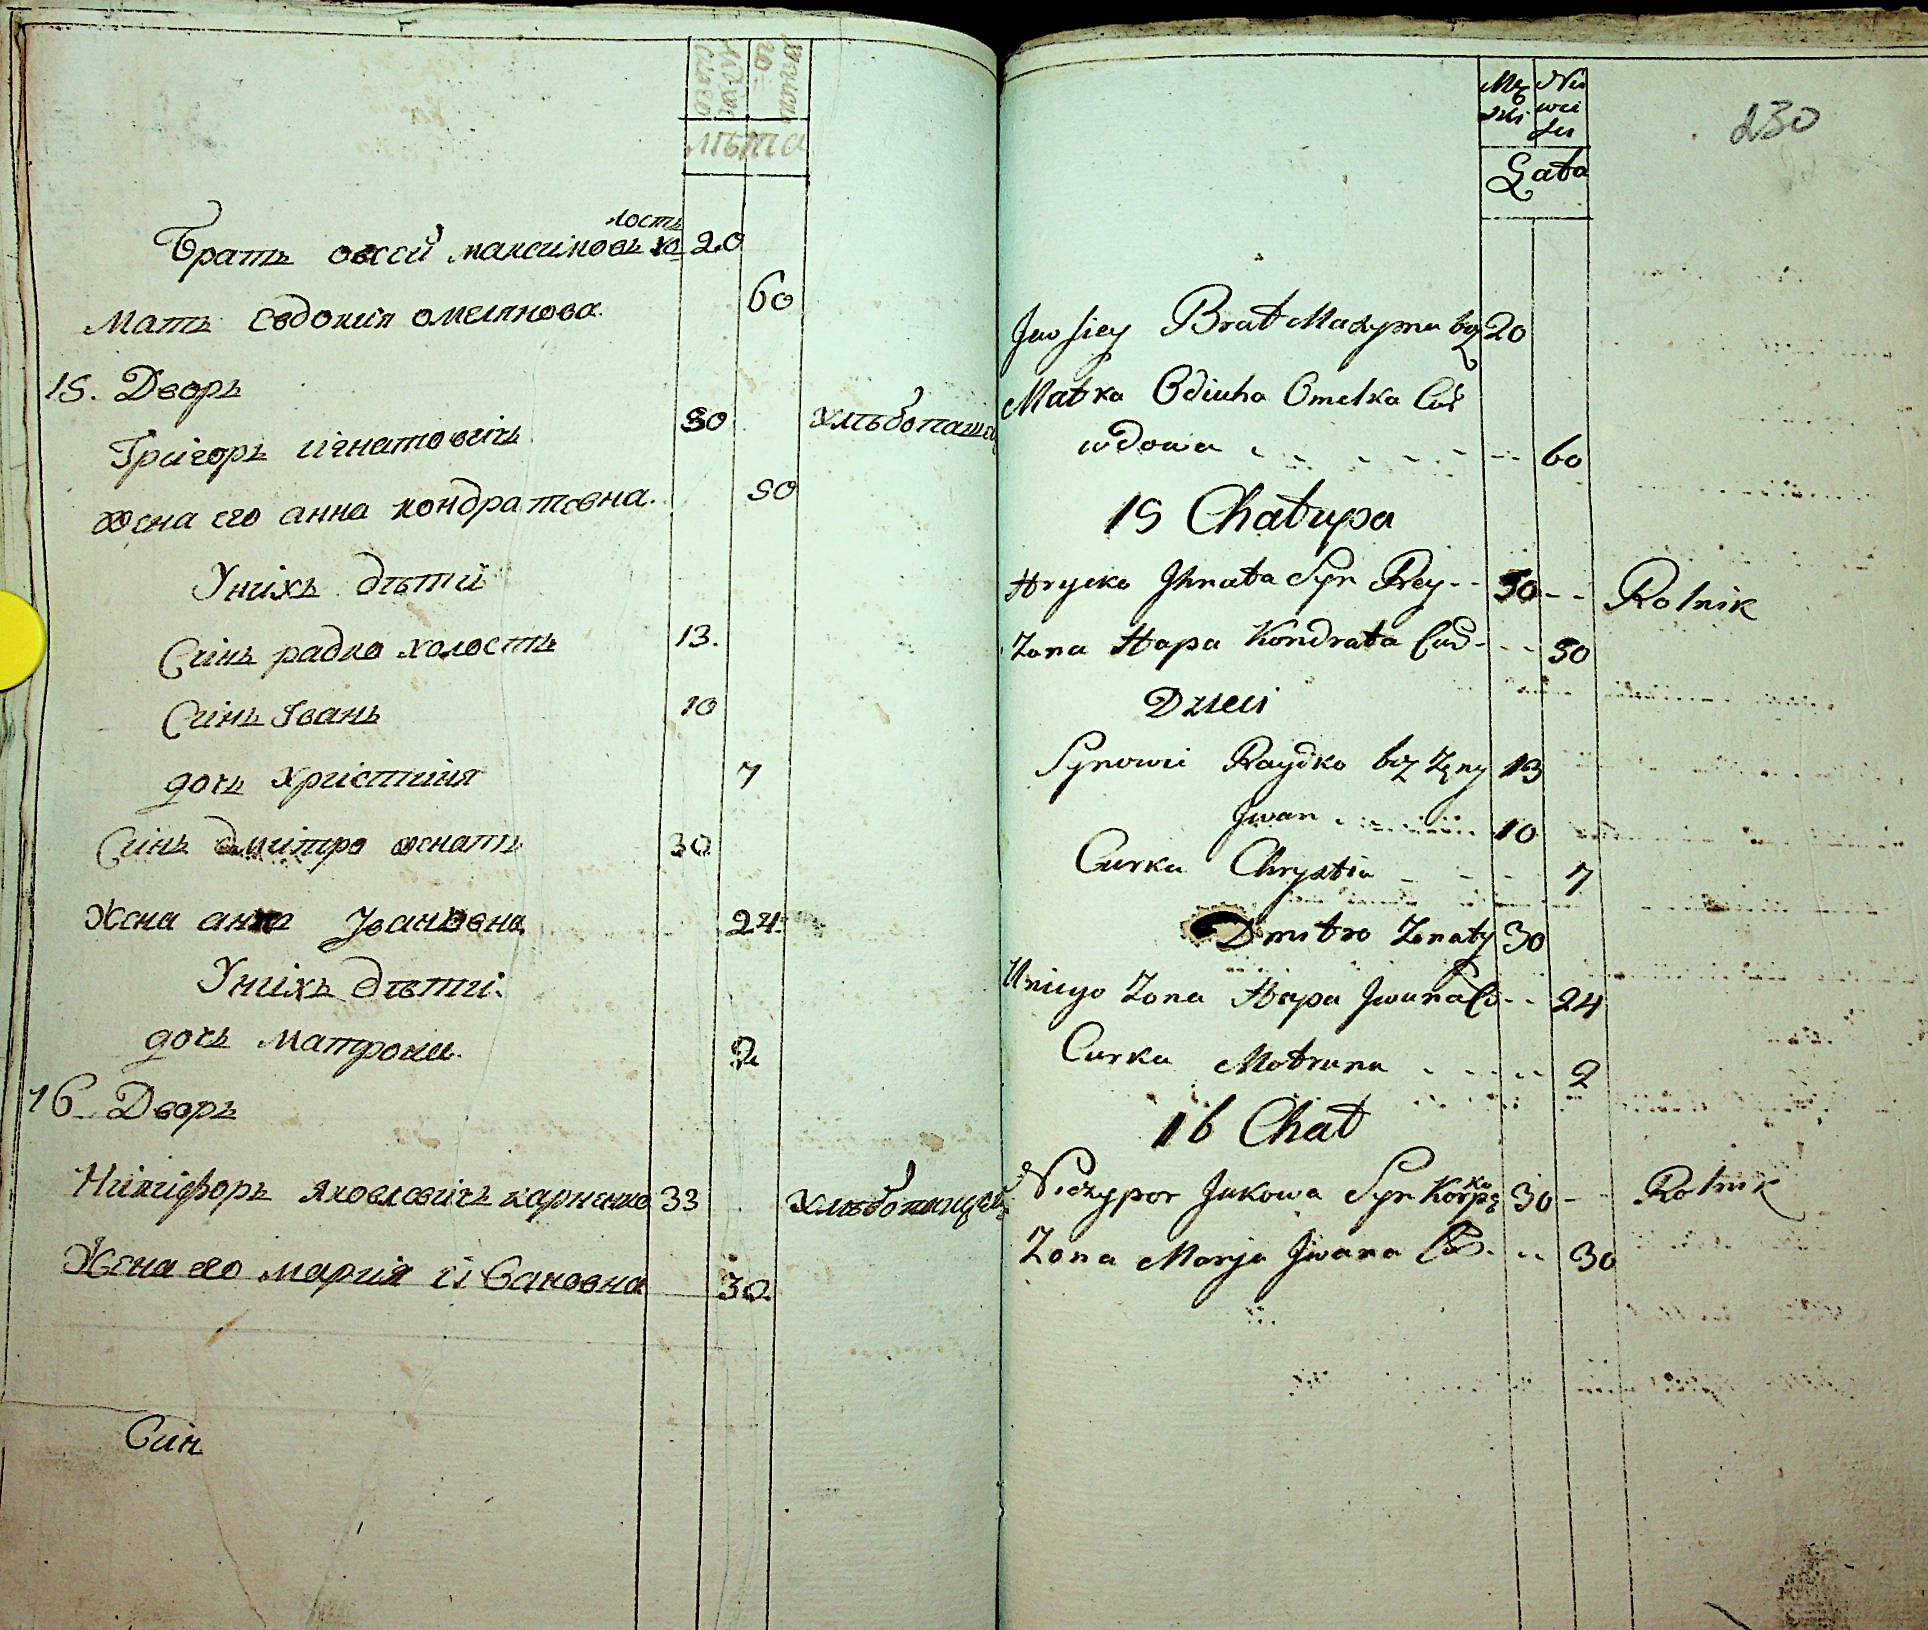 лѣта
Братъ овсей максимовъ холостъ 20
Мать евдокия омелянова 60
15. Дворъ
Григоръ игнатовичъ 50 хлѣбопашецъ
жена его анна кондратовна. 50
Унихъ дѣти
Синъ радко холостъ 13.
Синъ Іванъ 10
дочь христиня 7
Синъ дмитро женатъ 30
Жена анна Івановна 24.
Унихъ дѣти.
дочь матрона. 2
16. Дворъ
Никифоръ яковлевичъ карпенко 33 хлѣбопашецъ
Жена его мария ивановна 30.
Син
230
Męzki Niewci
Lata
Jowsiey Brat Maxyma bez 20
Matka Odiuha Omelka Cur
wdowa 60
15 Chatupa
Hrycko Ihnata Syn Rey 50 Rolnik
Zona Hapa Kondrata Cur 50
Dzieci
Synowie Raydko bez Zeny 13
Iwan 10
Curka Chrystia 7
Dmitro Zonaty 30
Uniego Zona Hapa Iwana C 24
Curka Motruna 2
16 Chat
Niczypor Jakowa Syn Korpęko 30 Rolnik
Zona Marja Iwana C 30